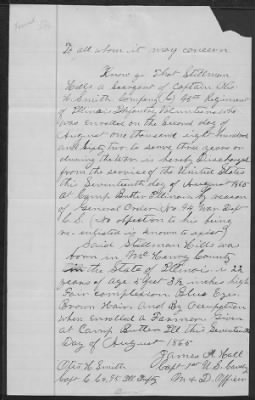 To all whom it may concern
Know ye That Stillman
Hills a Sergeant of Captain Otis
W Smith Company (C) 95th Regiment
of Illinois Infantry Volunteers who
was enrolled on the Second day of
August one thousand eight hundred
and sixty two to serve three years or
during the War is hereby Discharged
from the service of the United States
this Seventeenth day of August 1865
at Camp Butler Illinois by reason
of General Order No 94 War Dept
U.S. (No objection to his being
re-enlisted is known to exist)
Said Stillman Hills was
born in McHenry County
in the State of Illinois is 22
years of age 5 feet 3½ inches high
Fair complexion Blue Eyes
Brown Hair And By Occupation
when enrolled A Farmer Given
at Camp Butler Ill this Seventeenth
Day of August 1865
James A Hall
Otis W Smith Capt 1st U.S. Cavly
Capt C Co 95 Ill Infty M & D. Officer